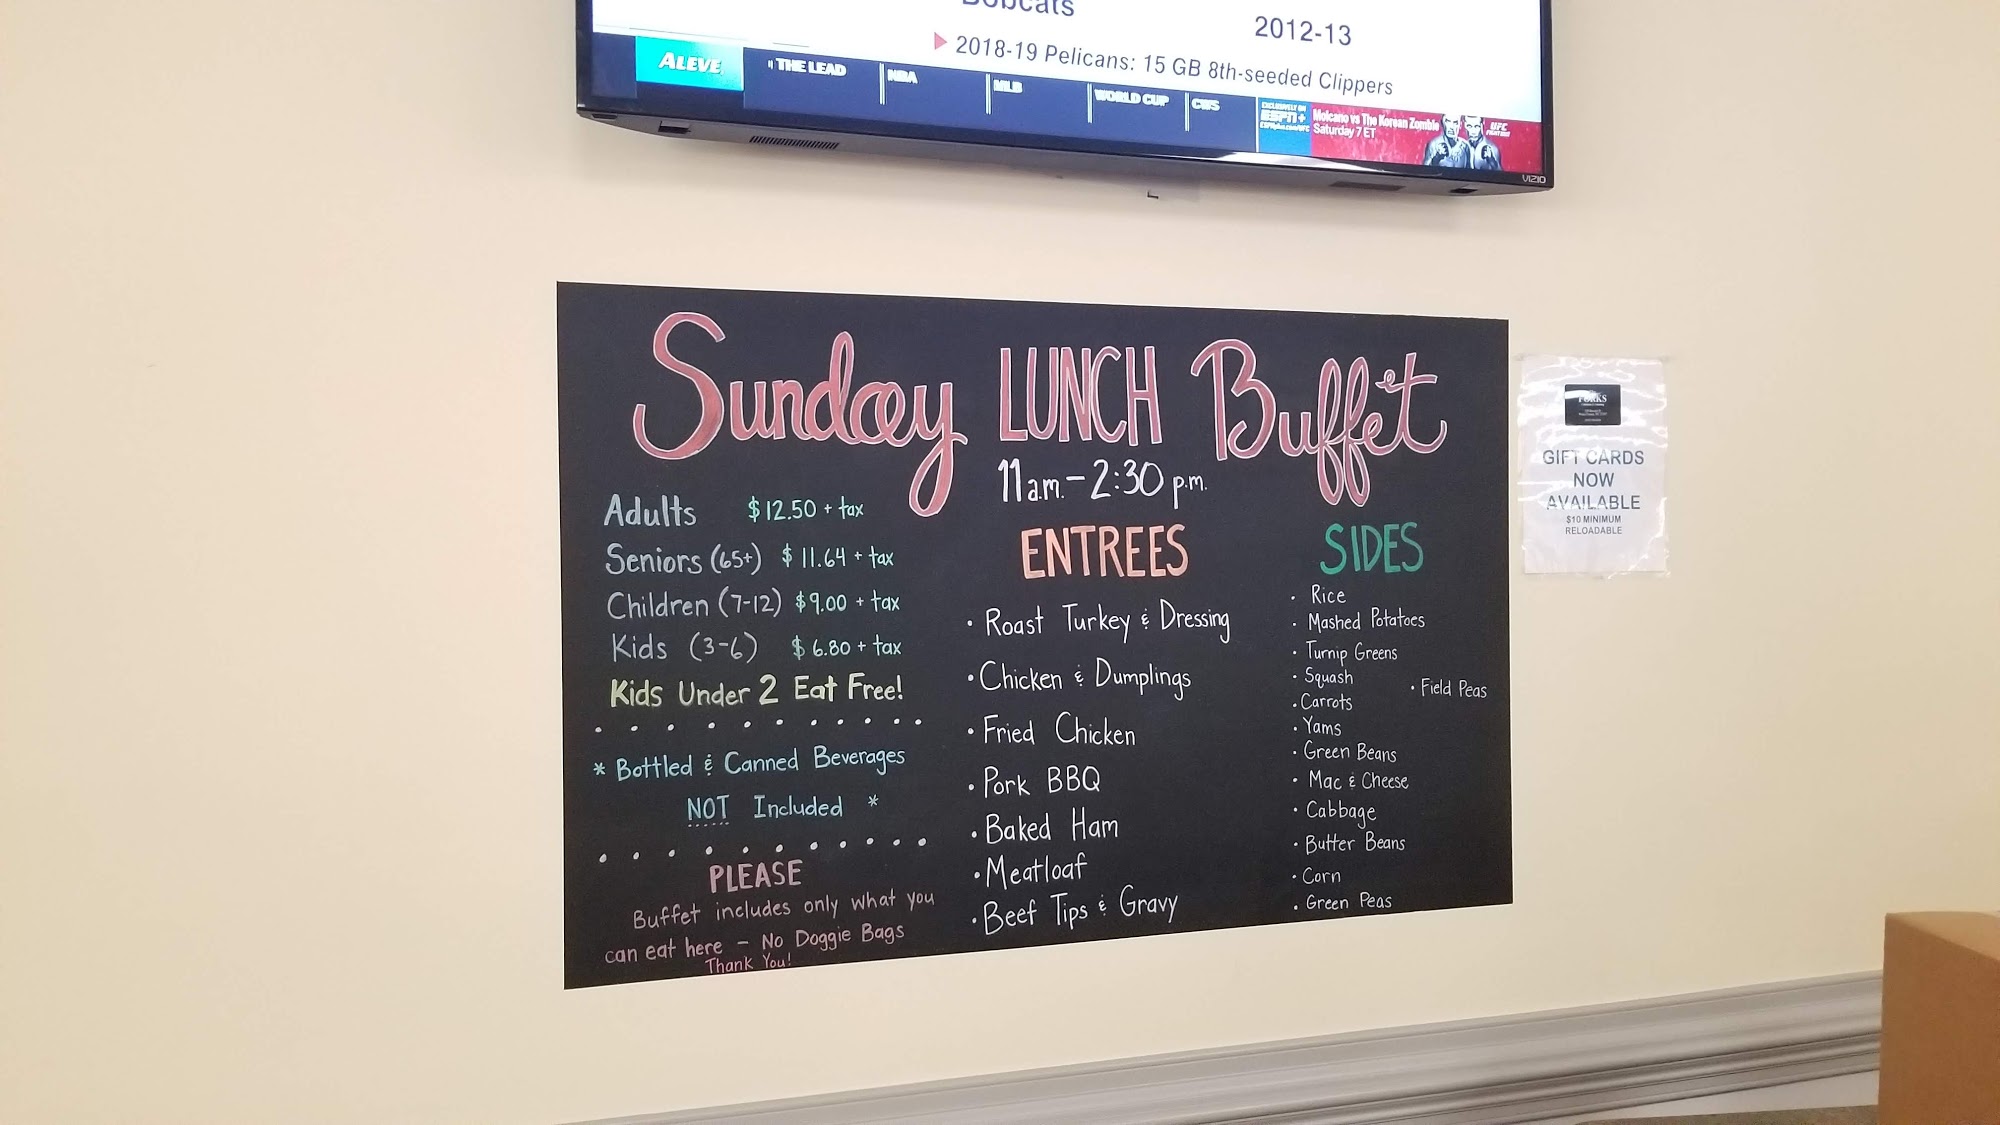 Bobcats
2012-13
2018-19 Pelicans: 15 GB 8th-seeded Clippers
ALEVE
THE LEAD
NBA
MLB
WORLD CUP
CWS
EXCLUSIVELY ON
ESPN+
Moicano vs The Korean Zombie
Saturday 7 ET
UFC
FIGHT NIGHT
VIZIO
Sunday LUNCH Buffet
11a.m. - 2:30 p.m.
Adults $12.50 + tax
Seniors (65+) $11.64 + tax
Children (7-12) $9.00 + tax
Kids (3-6) $6.80 + tax
Kids Under 2 Eat Free!
* Bottled & Canned Beverages
NOT Included *
PLEASE
Buffet includes only what you
can eat here - No Doggie Bags
Thank You!
ENTREES
• Roast Turkey & Dressing
• Chicken & Dumplings
• Fried Chicken
• Pork BBQ
• Baked Ham
• Meatloaf
• Beef Tips & Gravy
SIDES
• Rice
• Mashed Potatoes
• Turnip Greens
• Squash
• Field Peas
• Carrots
• Yams
• Green Beans
• Mac & Cheese
• Cabbage
• Butter Beans
• Corn
• Green Peas
GIFT CARDS
NOW
AVAILABLE
$10 MINIMUM
RELOADABLE